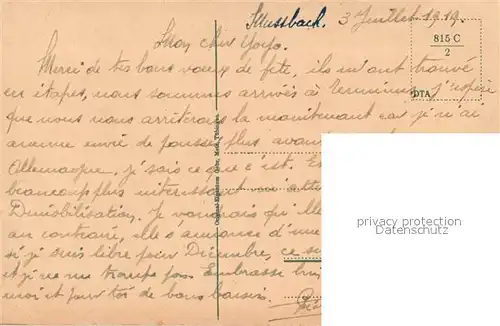 Mussbach. 3 Juillet 1919.
Mon cher Yoyo.
Merci de tes bons vœux de fête, ils m'ont trouvé
en étapes, nous sommes arrivés à Terminus, j'espère
que nous nous arrêterons là maintenant car je n'ai
aucune envie de pousser plus avant
Allemagne, je sais ce que c'est.
beaucoup plus intéressant
Démobilisation. Je voudrais qu'elle
au contraire, elle s'annonce d'une
si je suis libre pour Décembre, ce
et je ne me trompe pas. Embrasse
moi et pour toi de bons baisers.
815 C
2
DTA
privacy protection
for Customers